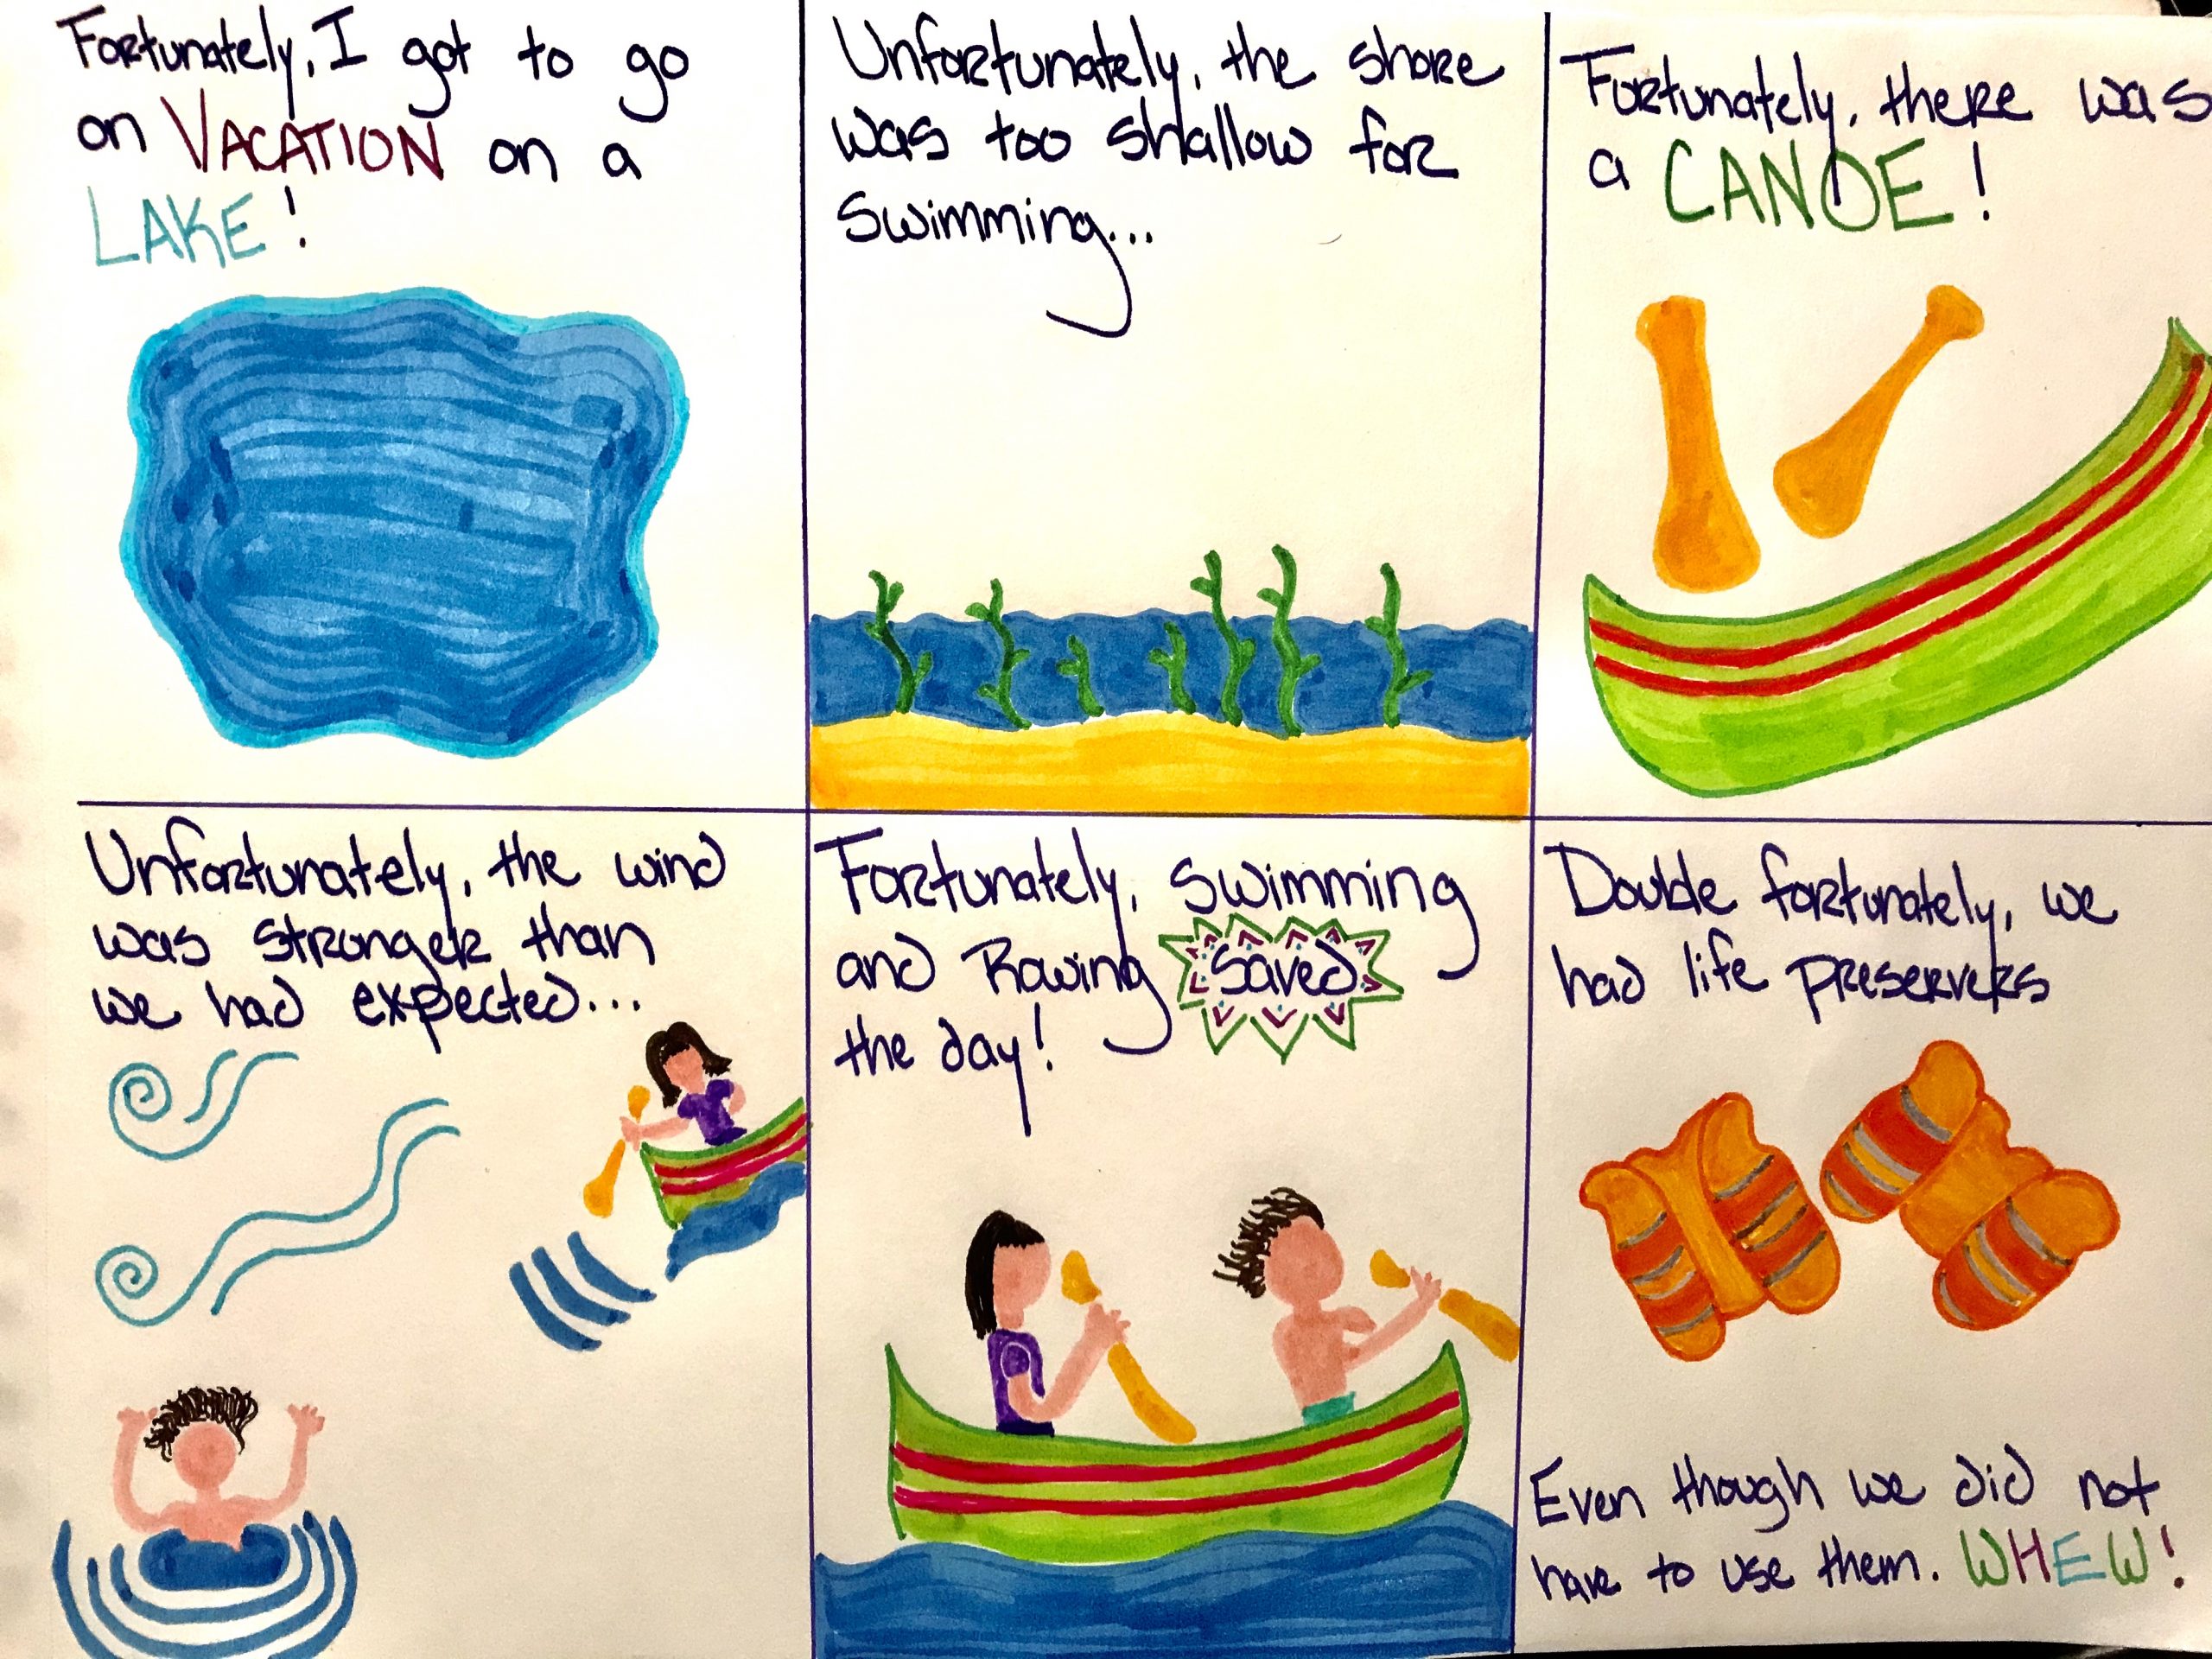 Fortunately, I got to go
on VACATION on a
LAKE!
Unfortunately, the shore
was too shallow for
swimming...
Fortunately, there was
a CANOE!
Unfortunately, the wind
was stronger than
we had expected...
Fortunately, swimming
and Rowing saved
the day!
Double fortunately, we
had life preservers
Even though we did not
have to use them. WHEW!